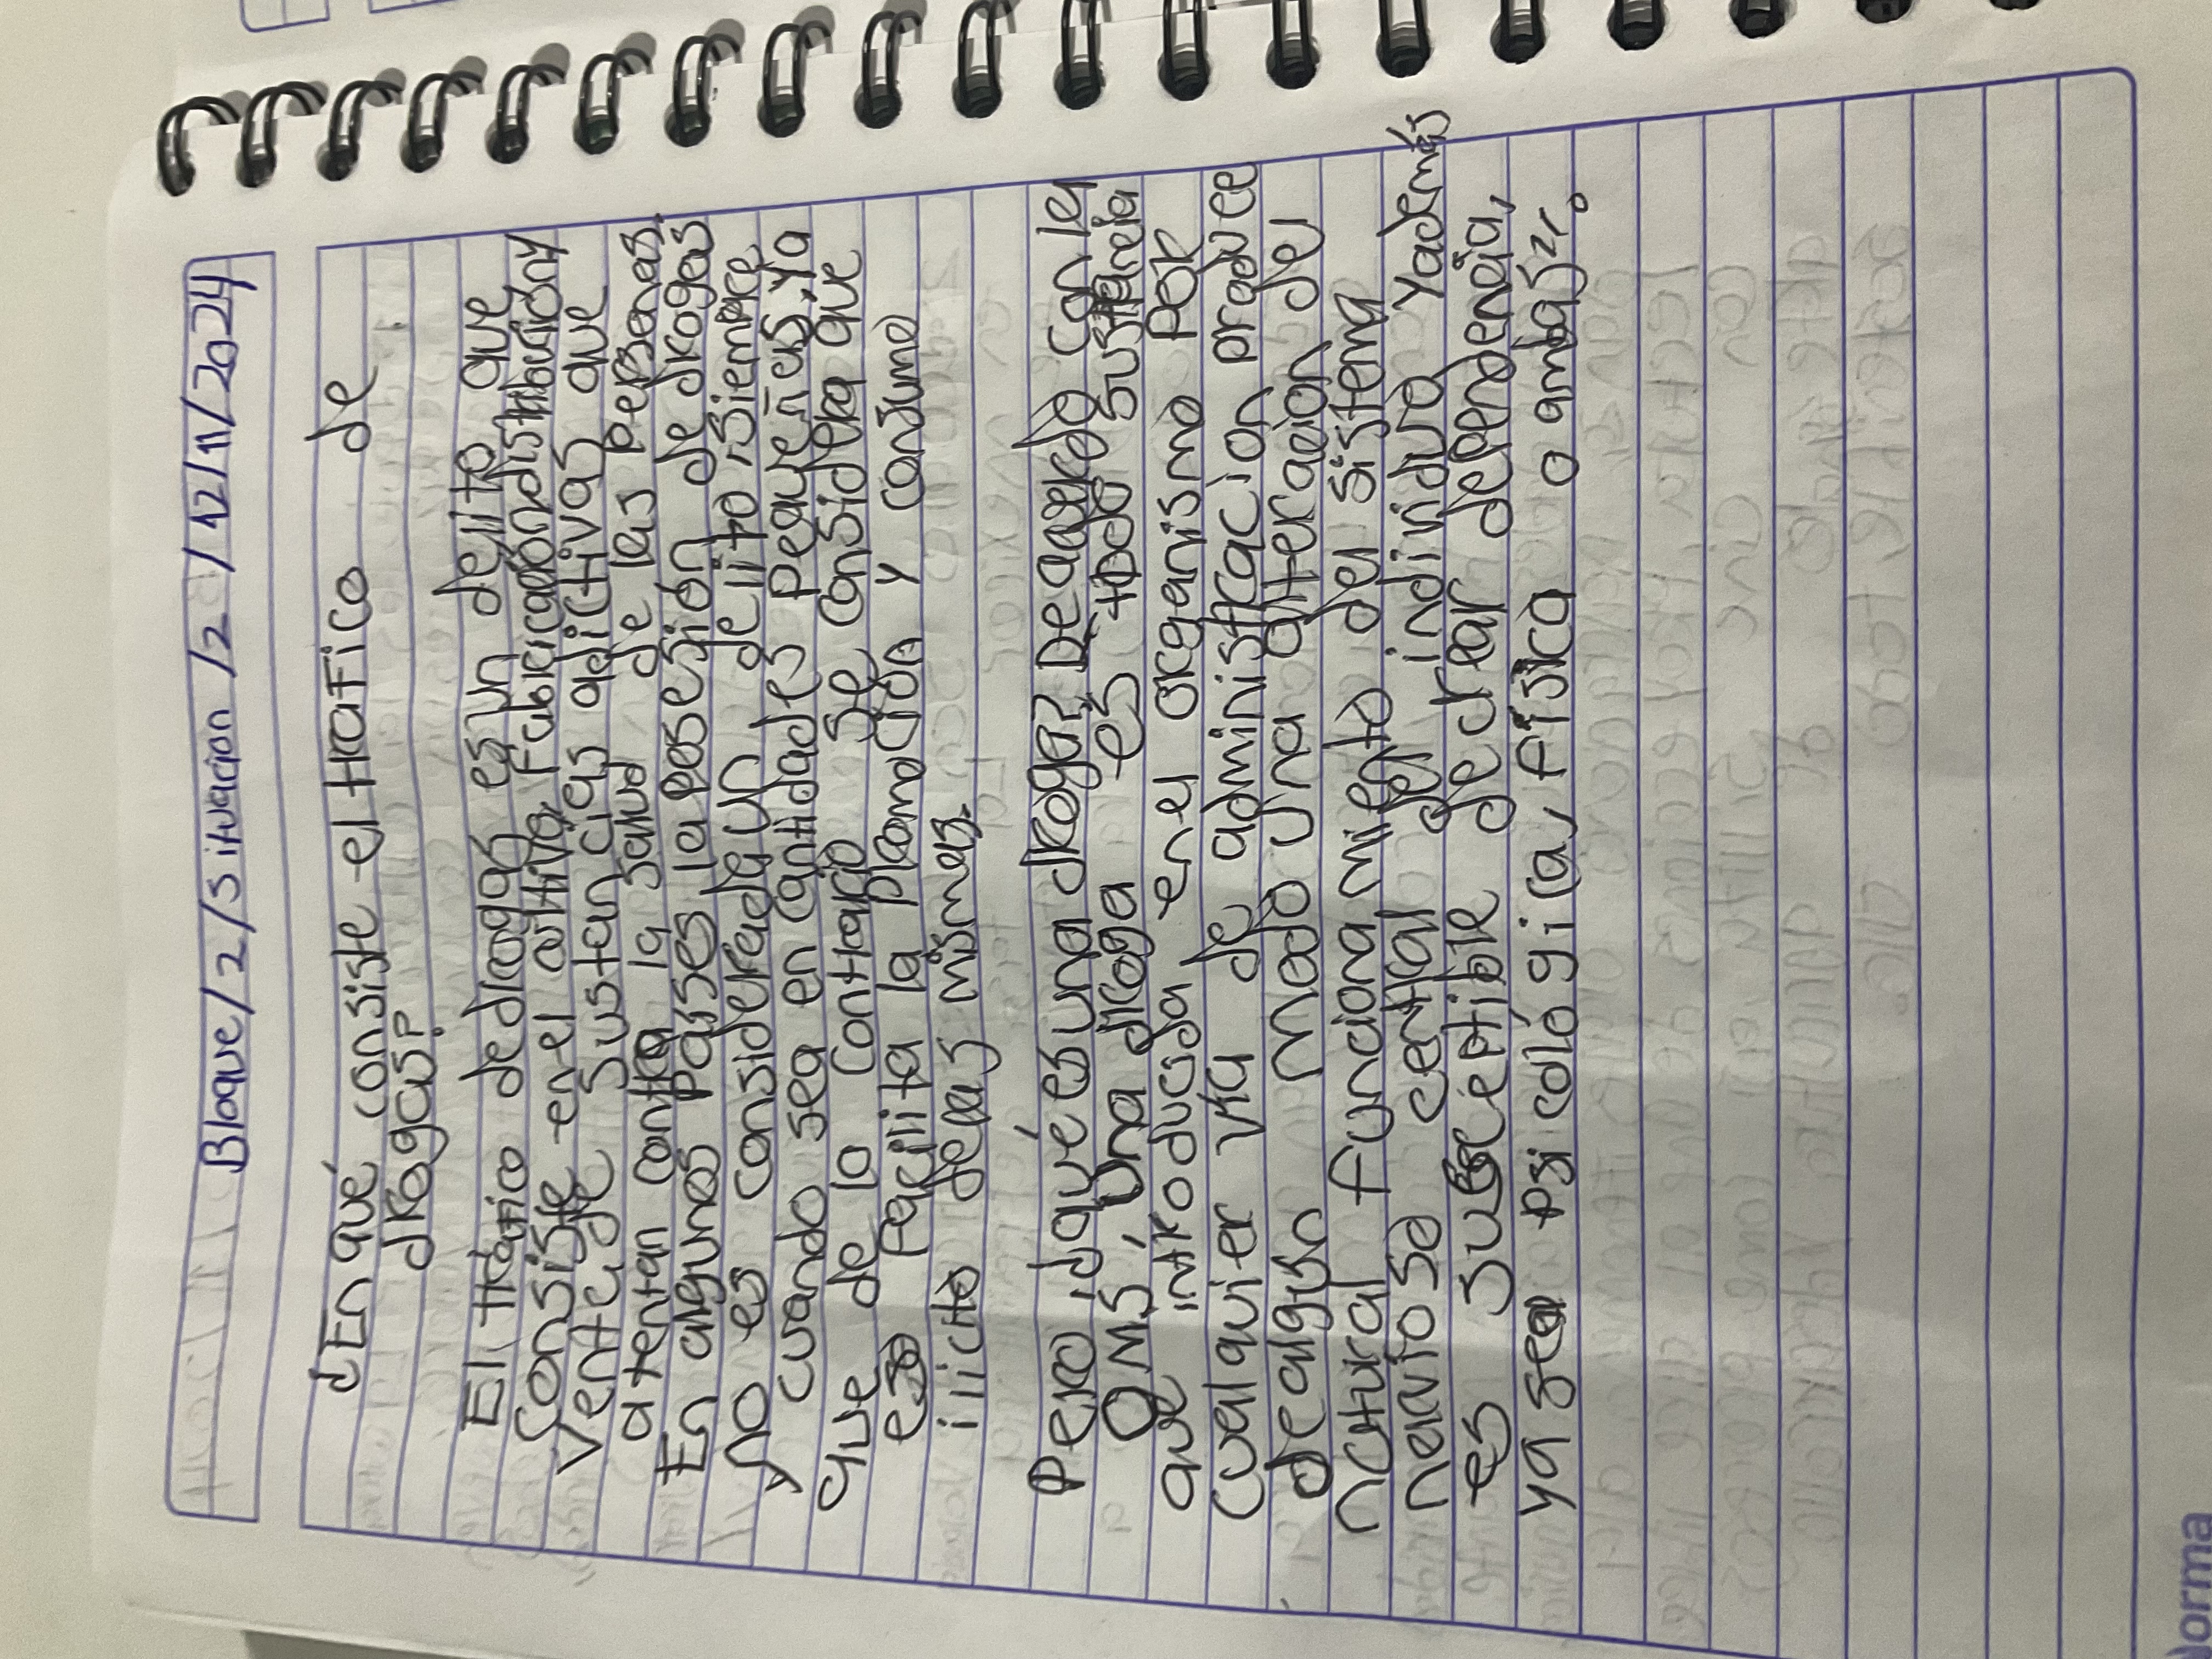 Bloque/2/Situacion/2/12/11/2024
¿En qué consiste el trafico de
drogas?
El tráfico de drogas es un delito que
Consiste en el cultivo, Fabricación distribución y
Venta de Sustancias adictivas que
atentan contra la salud de las personas.
En algunos países la posesión de drogas
no es considerada un delito, siempre
y cuando sea en cantidades pequeñas, ya
que de lo contrario se considera que
eso Facilita la promoción y consumo
ilicito delas mismas.
Pero ¿qué es una droga? De acuerdo con la
OMS, Una droga es todo sustancia
que introducida en el organismo por
cualquier vía de administración produce
de algún modo una alteración del
natural funcionamiento del sistema
nervioso central del individuo y además
es susceptible de crear dependencia,
ya sea psicológica, física o ambas".
Norma